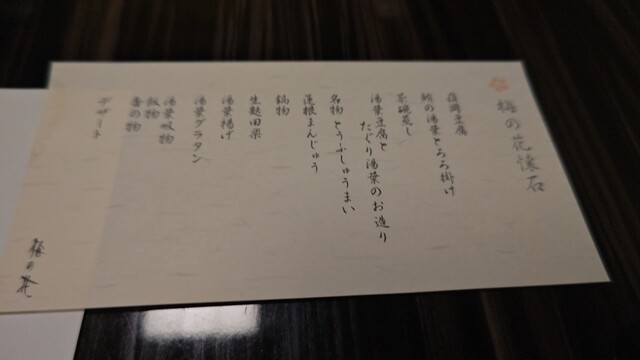 梅の花懐石
嶺岡豆腐
鮪の湯葉とろろ掛け
茶碗蒸し
湯葉豆腐と
たぐり湯葉のお造り
名物とうふしゅうまい
蓮根まんじゅう
鍋物
生麩田楽
湯葉揚げ
湯葉グラタン
湯葉吸物
飯物
香の物
デザート
梅の花